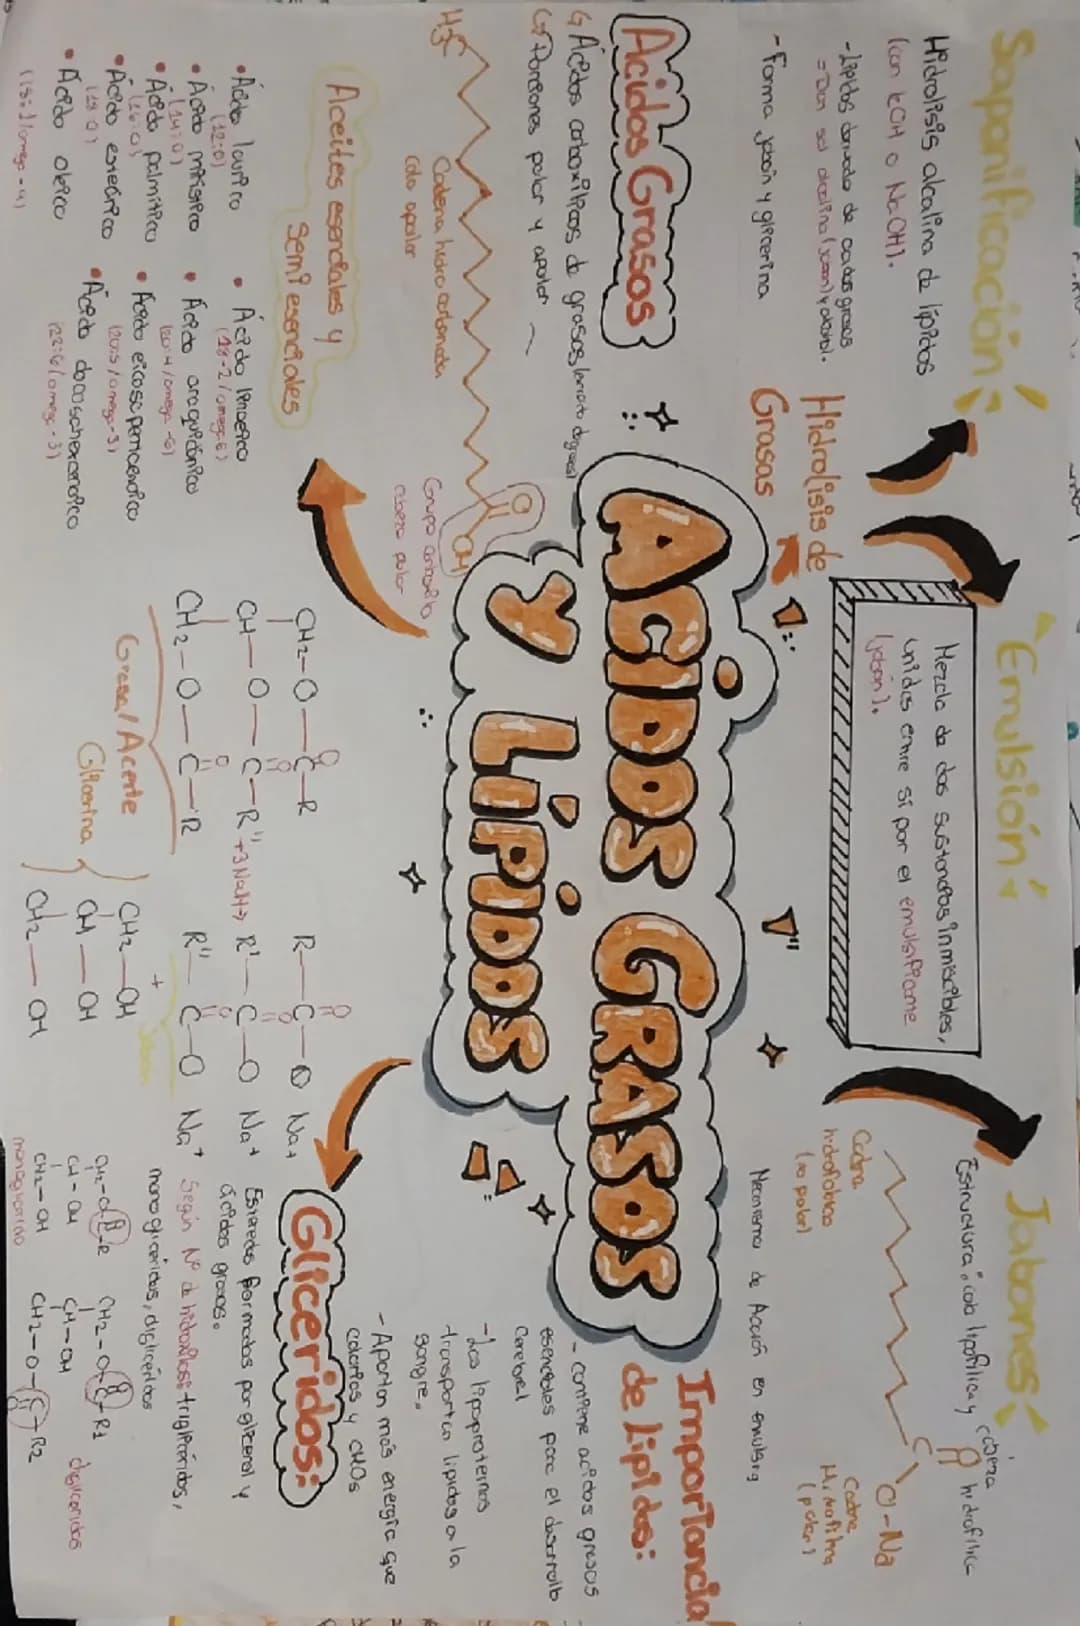 ACIDOS GRASOS
Y LÍPIDOS
Saponificación:
Hidrolisis alcalina de lípidos
(con KOH o NaOH).
-Lípidos derivados de acidos grasos
= Dan sal alcalina (jabon) y alcohol.
-Forma jabón y glicerina
Hidrolisis de
Grasas
Emulsión
Mezcla de dos sustancias inmiscibles,
unidas entre sí por el emulsificante
(jabón).
Jabones
Estructura: cola lipofilica y cabeza
hidrofilica
C
O
O-Na
Cadena
hidrofobica
(no polar)
Cadena
Hidrofilica
(polar)
Mecanismo de Acción en emulsión
Acidos Grasos
Acidos carboxilicos de grasas
Porciones polar y apolar
H3C
O
OH
Cadena hidrocarbonada
Cola apolar
Grupo carboxilo
cabeza polar
Aceites esenciales y
Semi esenciales
• Ácido laurico
(12:0)
• Ácido miristico
(14:0)
• Ácido palmitico
(16:0)
• Ácido estearico
(18:0)
• Ácido oleico
• Ácido linoleico
(18-2/omega 6)
• Ácido araquidónico
(20:4/omega-6)
• Ácido eicosapentaenoico
(20:5/omega-3)
• Ácido docosahexaenoico
(22:6/omega-3)
CH2-O-C-R
O
CH-O-C-R'' +3NaOH→
O
CH2-O-C-'R
O
Grasa/Aceite
R-C-O Na+
O
R'-C-O Na+
O
R''-C-O Na+
O
+
Jabon
Glicerina
CH2-OH
CH-OH
CH2-OH
Importancia
de lipidos:
- contiene acidos grasos
esenciales para el desarrollo
Cerebral
-Los lipoproteinas
transportan lipidos a la
sangre.
-Aportan más energía que
calorías y CHOs
Gliceridos:
Esteres formados por glicerol y
ácidos grasos.
Según Nº de hidroxilos: trigliceridos,
monogliceridos, digliceridos
CH2-O-C-R
O
CH-OH
CH2-OH
monoglicerido
CH2-O-C-R1
O
CH-OH
CH2-O-C-R2
O
digliceridos